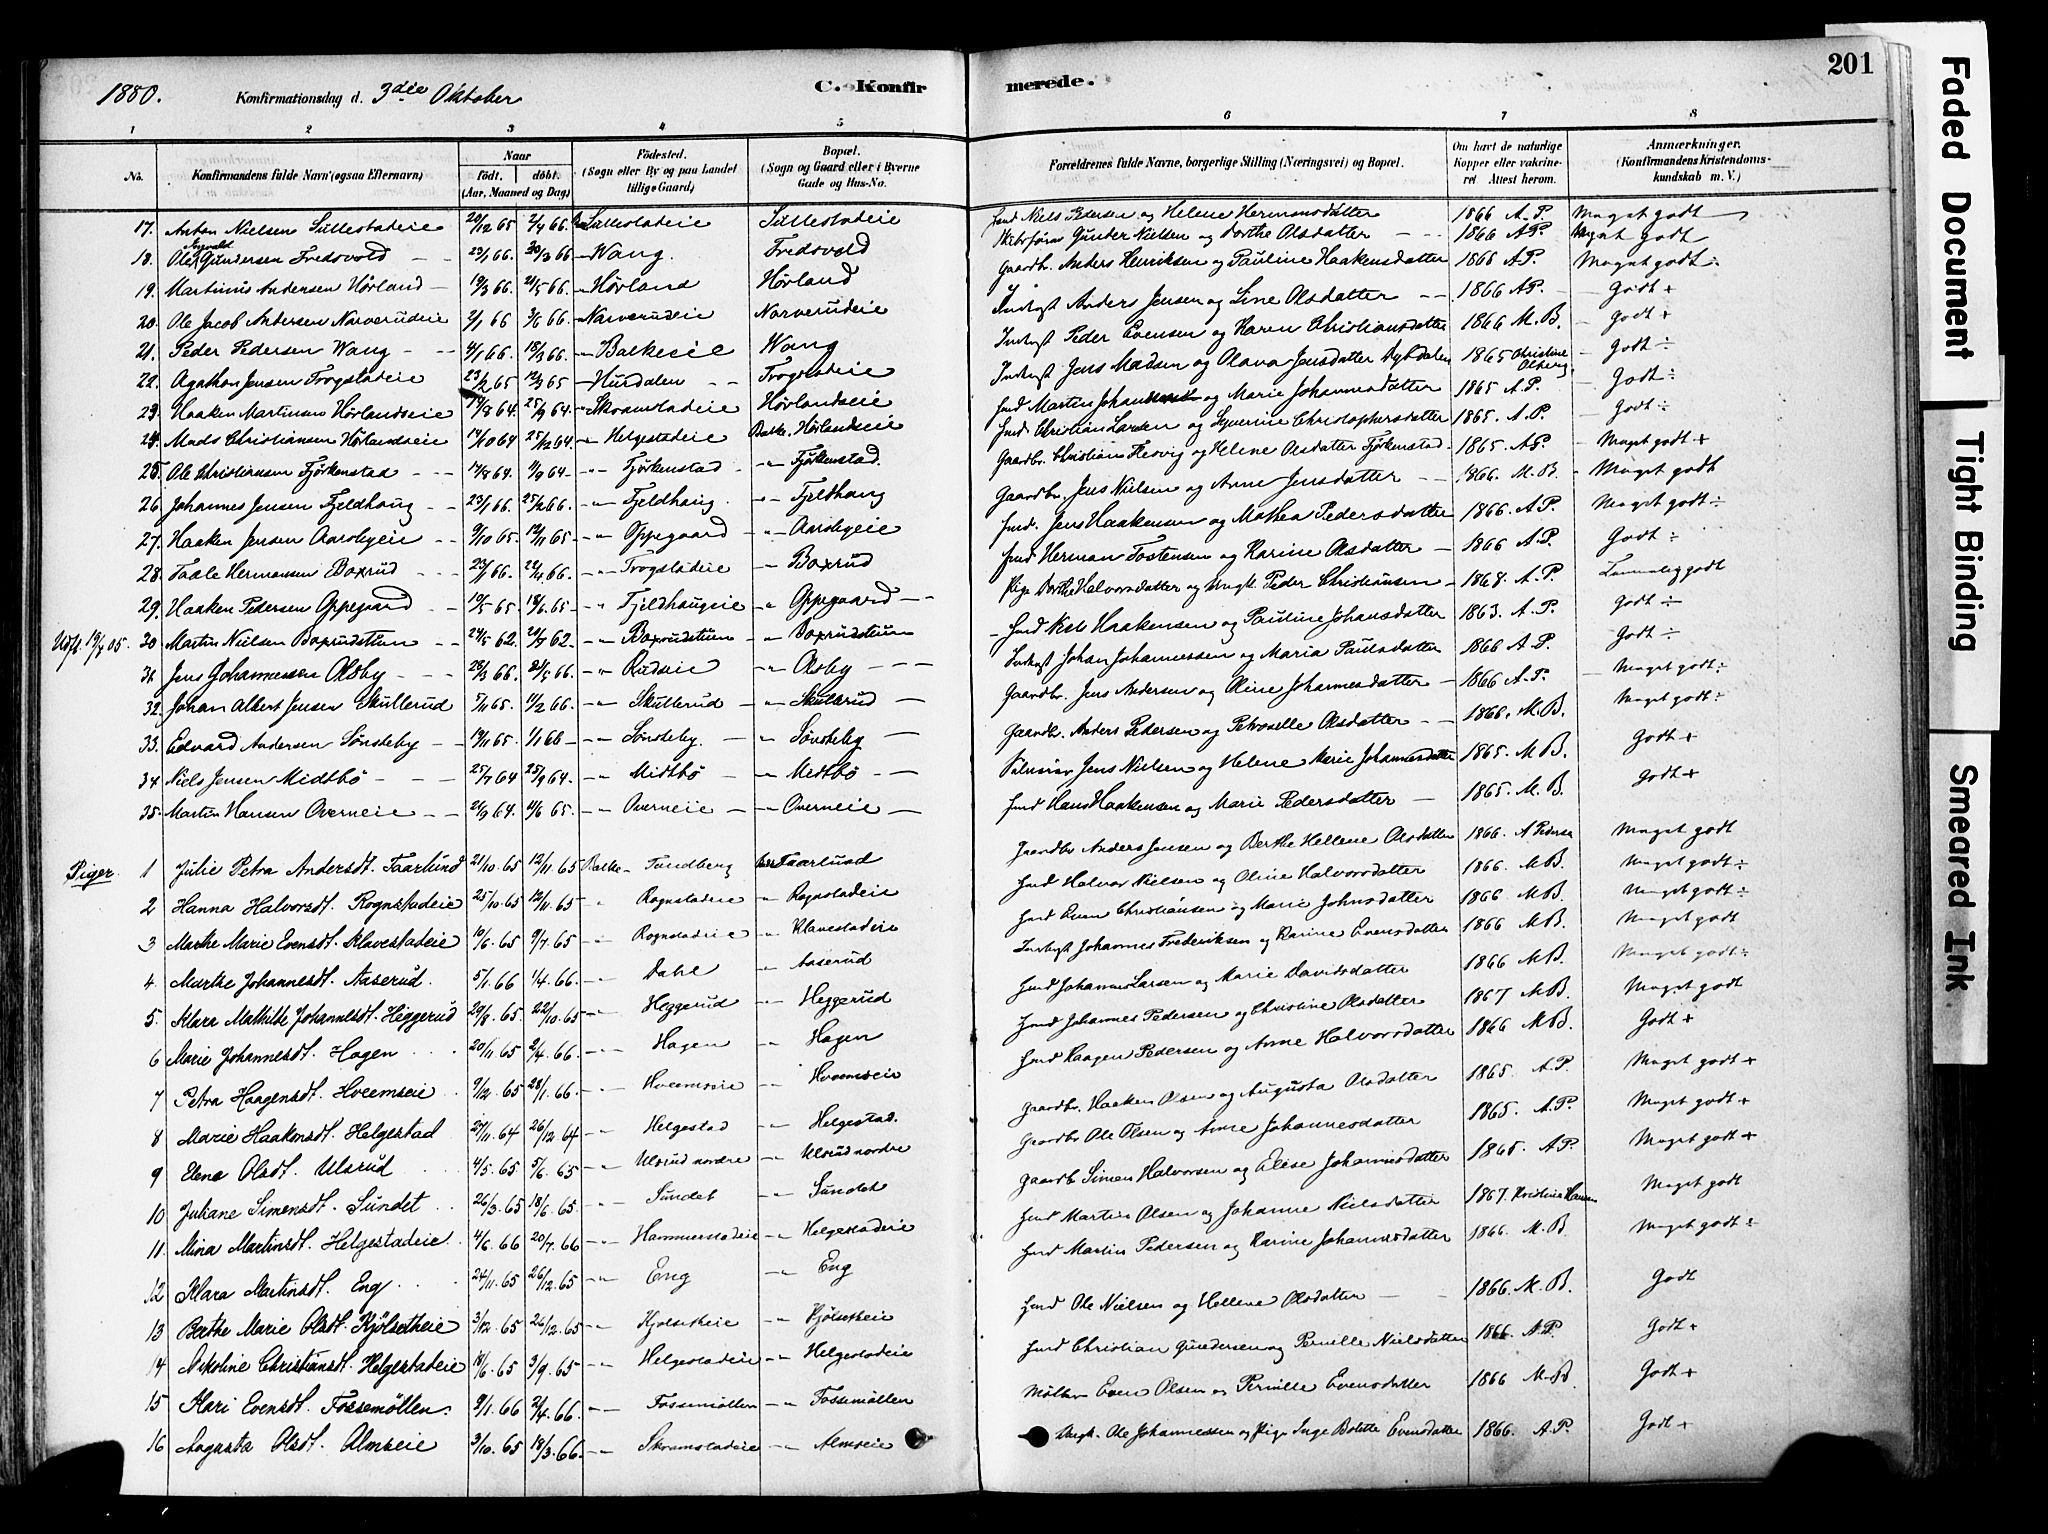 1880. Konfirmationsdag d. 3die Oktober C. Konfirmerede. 201
1 2 3 4 5 6 7 8
No. Konfirmandens fulde Navn (ogsaa Efternavn) Naar født. døbt. (Aar, Maaned og Dag) Fødested. (Sogn eller By og paa Landet tillige Gaard) Bopæl. (Sogn og Gaard eller i Byerne Gade og Hus-No. Forældrenes fulde Navne, borgerlige Stilling (Næringsvei) og Bopæl. Om havt de naturlige Kopper eller vakcineret. Attest herom. Anmærkninger. (Konfirmandens Kristendomskundskab m. V.)
17. Anton Nielsen Sullestadeie 20/12 65 2/4 66. Sullestadeie Sullestadeie Ind Niels Pedersen og Helene Hermansdatter 1866 A.P. Meget godt
18. Ole Gundersen Fredsvold 23/1 66. 30/3 66 Wang. Fredsvold Skibsfører Gunder Nielsen og Dorthe Olsdatter 1866 A.P. Meget godt
19. Martinus Andersen Hörland 19/3 66. 21/5 66. Hörland Hörland Gaardbr. Anders Henriksen og Pauline Haakensdatter 1866 A.P. Meget godt ÷
20. Ole Jacob Andersen Narverudeie 2/1 66 3/6 66. Narverudeie Narverudeie Inderst Anders Jensen og Line Olsdatter 1866 A.P. Godt +
21. Peder Pedersen Wang 4/1 66. 18/3 66. Balkeeie Wang Inderst Peder Evensen og Karen Christiansdatter 1866 M.B. Godt +
22. Agathon Jensen Trogstadeie 23/2 65 12/3 65 Hurdalen Trogstadeie Inderst Jens Madsen og Olava Jensdatter Dybdalen 1865 Christine Olberg Godt ÷
23. Haaken Martinsen Hörlandseie 14/8 64. 25/9 64. Skramstadeie Hörlandseie Ind Martin Johannesen og Marie Johannesdatter 1865 A.P. Godt ÷
24. Mads Christiansen Hörlandseie 14/10 64 25/12 64. Helgestadeie Balke. Hörlandseie Ind Christian Larsen og Syverine Christophersdatter 1865. A.P. Godt ÷
25. Ole Christiansen Fjörkenstad 17/8 64. 11/9 64. Fjörkenstad Fjörkenstad. Gaardbr. Christian Flesvig og Helene Olsdatter Fjörkenstad 1865. A.P. Meget godt +
26. Johannes Jensen Fjeldhaug 23/1 66. 25/2 66. Fjeldhaug. Fjeldhaug Gaardbr. Jens Nielsen og Anne Jensdatter 1866. M.B. Meget godt
27. Haaken Jensen Aarsbyeie 9/10 65. 12/11 65 Oppegaard Aarsbyeie Ind. Jens Haakensen og Mathea Pedersdatter 1866 A.P. Meget godt ÷
28. Taale Hermansen Boxrud 23/1 66. 22/4 66. Trogstadeie Boxrud Ind Herman Tostensen og Karine Olsdatter 1866 A.P. Godt ÷
29. Haaken Pedersen Oppegaard 19/5 65 18/6 65. Fjeldhaugeie Oppegaard Pige Dorthe Halvorsdatter og Ungk. Peder Christiansen 1868. A.P. Temmelig godt
Udfl. 19/4 05. 30. Martin Nielsen Boxrudstuen 24/5 62. 20/7 62. Boxrudstuen Boxrudstuen Ind Niels Haakensen og Pauline Johansdatter 1863. A.P. Godt ÷
31. Jens Johannessen Olsby 28/3 66. 21/5 66. Rudseie Olsby Inderst Johan Johannessen og Maria Paulsdatter 1866 A.P. Godt ÷
32. Johan Albert Jensen Skullerud 5/11 65. 11/2 66. Skullerud Skullerud Gaardbr. Jens Andersen og Oline Johannesdatter 1866 A.P. Meget godt ÷
33. Edvard Andersen Sönsteby 19/11 65. 1/1 66 Sönsteby. Sönsteby Gaardbr. Anders Pedersen og Petronelle Olsdatter 1866. M.B. Meget godt ÷
34. Niels Jensen Midtbö 25/7 64 25/9 64. Midtbö Midtbö Jens Nielsen og Helene Marie Johannesdatter 1865. M.B. Godt +
35. Martin Hansen Overneie 21/9 64. 11/6 65. Overneie Overneie Ind Hans Haakensen og Marie Pedersdatter 1865. M.B. Godt +
Piger. 1 Julie Petra Andersdt. Faarlund 21/10. 65 12/11. 65 Balke Sundberg Faarlund Gaardbr Anders Jensen og Berthe Hellene Olsdatter 1866. A Pedersen Meget godt
2 Hanna Halvorsdt. Rognstadeie 25/10. 65 12/11. 65 Rognstadeie Rognstadeie Ind Halvor Nielsen og Oline Halvorsdatter 1866. M.B. Meget godt ÷
3 Marthe Marie Evensdt. Klavestadeie 10/6. 65 9/7. 65 Rognstadeie Klavestadeie Ind Even Christiansen og Marie Johnsdatter 1866 M.B. Meget godt ÷
4. Marthe Johannesdt. Aaserud. 5/1. 66 1/4. 66 Dahl Aaserud Inderst Johannes Frederiksen og Karine Evensdatter 1866 M.B. Meget godt
5. Klara Mathilde Johannesdt. Heggerud 20/8. 65. 22/10. 65 Heggerud Heggerud Ind Johannes Larsen og Marie Davidsdatter 1866 M.B. Meget godt ÷
6 Marie Johannesdt. Hagen 20/11 65 2/4. 66. Hagen Hagen Ind Johannes Pedersen og Christine Olsdatter 1867 M.B. Meget godt
7 Petra Haagensdt. Hveemseie 9/12. 65 28/1. 66. Hveemseie Hveemseie Ind Haagen Pedersen og Anne Halvorsdatter 1866 M.B. Godt +
8 Marie Haakensdt. Helgestad 27/11. 64 26/12. 64 Helgestad Helgestad. Gaardbr. Haaken Olsen og Augusta Olsdatter 1865. A.P. Meget godt +
9 Elena Olsdt. Ulsrud 4/5. 65 5/6. 65 Ulsrud nordre Ulsrud nordre Gaardbr Ole Olsen og Anne Johannesdatter 1865. A.P. Meget godt +
10 Juliane Simensdt. Sundet 26/3. 65 18/6. 65. Sundet Sundet Gaardb Simen Halvorsen og Elise Johannesdatter 1865. A.P. Meget godt +
11. Mina Martinsdt. Helgestadeie. 4/6. 66 20/7. 66 Hammerstadeie Helgestadeie Ind Martin Olsen og Johanne Nielsdatter 1867. Kristine Hansen Meget godt
12 Klara Martinsdt. Eng 24/11. 65 26/12. 65 Eng Eng Ind Martin Pedersen og Karine Johannesdatter 1866. M.B. Meget godt ÷
13 Berthe Marie Olsdt. Kjölsetheie 3/12. 65 26/12. 65 Kjölsetheie Kjölsetheie Ind Ole Nielsen og Hellene Olsdatter 1866. M.B. Godt
14 Nikoline Christiansdt. Helgestadeie 18/6. 65 3/9. 65 Helgestadeie Helgestadeie Ind Christian Gundersen og Pernille Nielsdatter 1866. A.P. Godt +
15 Kari Evensdt. Fossemöllen. 9/1. 66 2/4. 66. Fossemöllen Fossemöllen Möller Even Olsen og Pernille Evensdatter 1866 M.B. Godt +
16 Augusta Olsdt. Almseie 3/10. 65 18/3. 66. Skramstadeie Almseie Ungk. Ole Johannessen og Pige Inge Bolette Evensdatter 1866. A.P. Godt +
Faded Document
Tight Binding
Smeared Ink